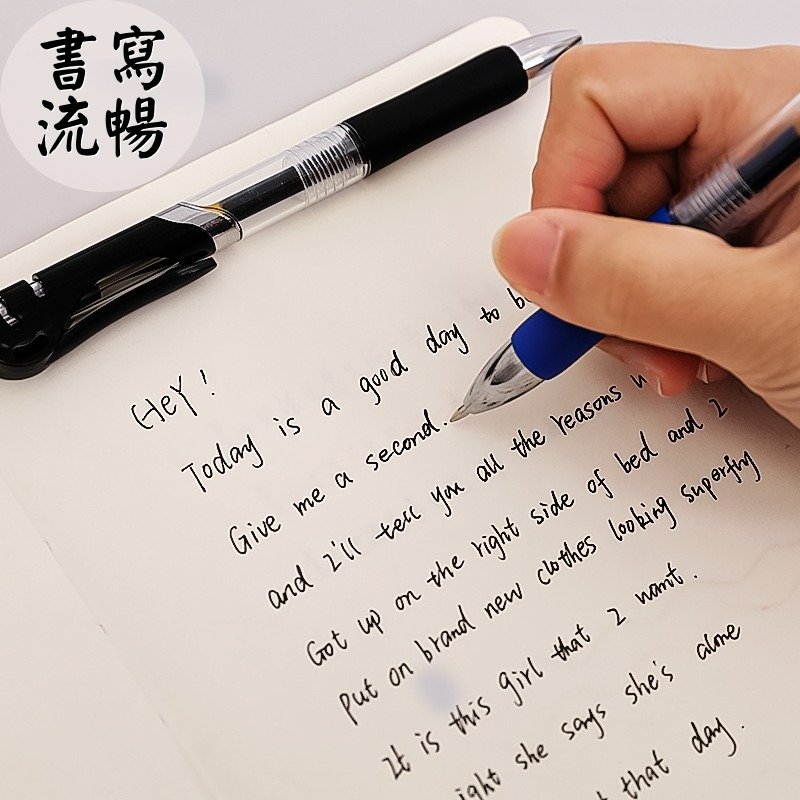 書寫
流暢
HeY!
Today is a good day to
Give me a second.
and I'll tell you all the reasons
Got up on the right side of bed and I
Put on brand new clothes looking superfly
It is this girl that I want.
she says she's alone
that day.